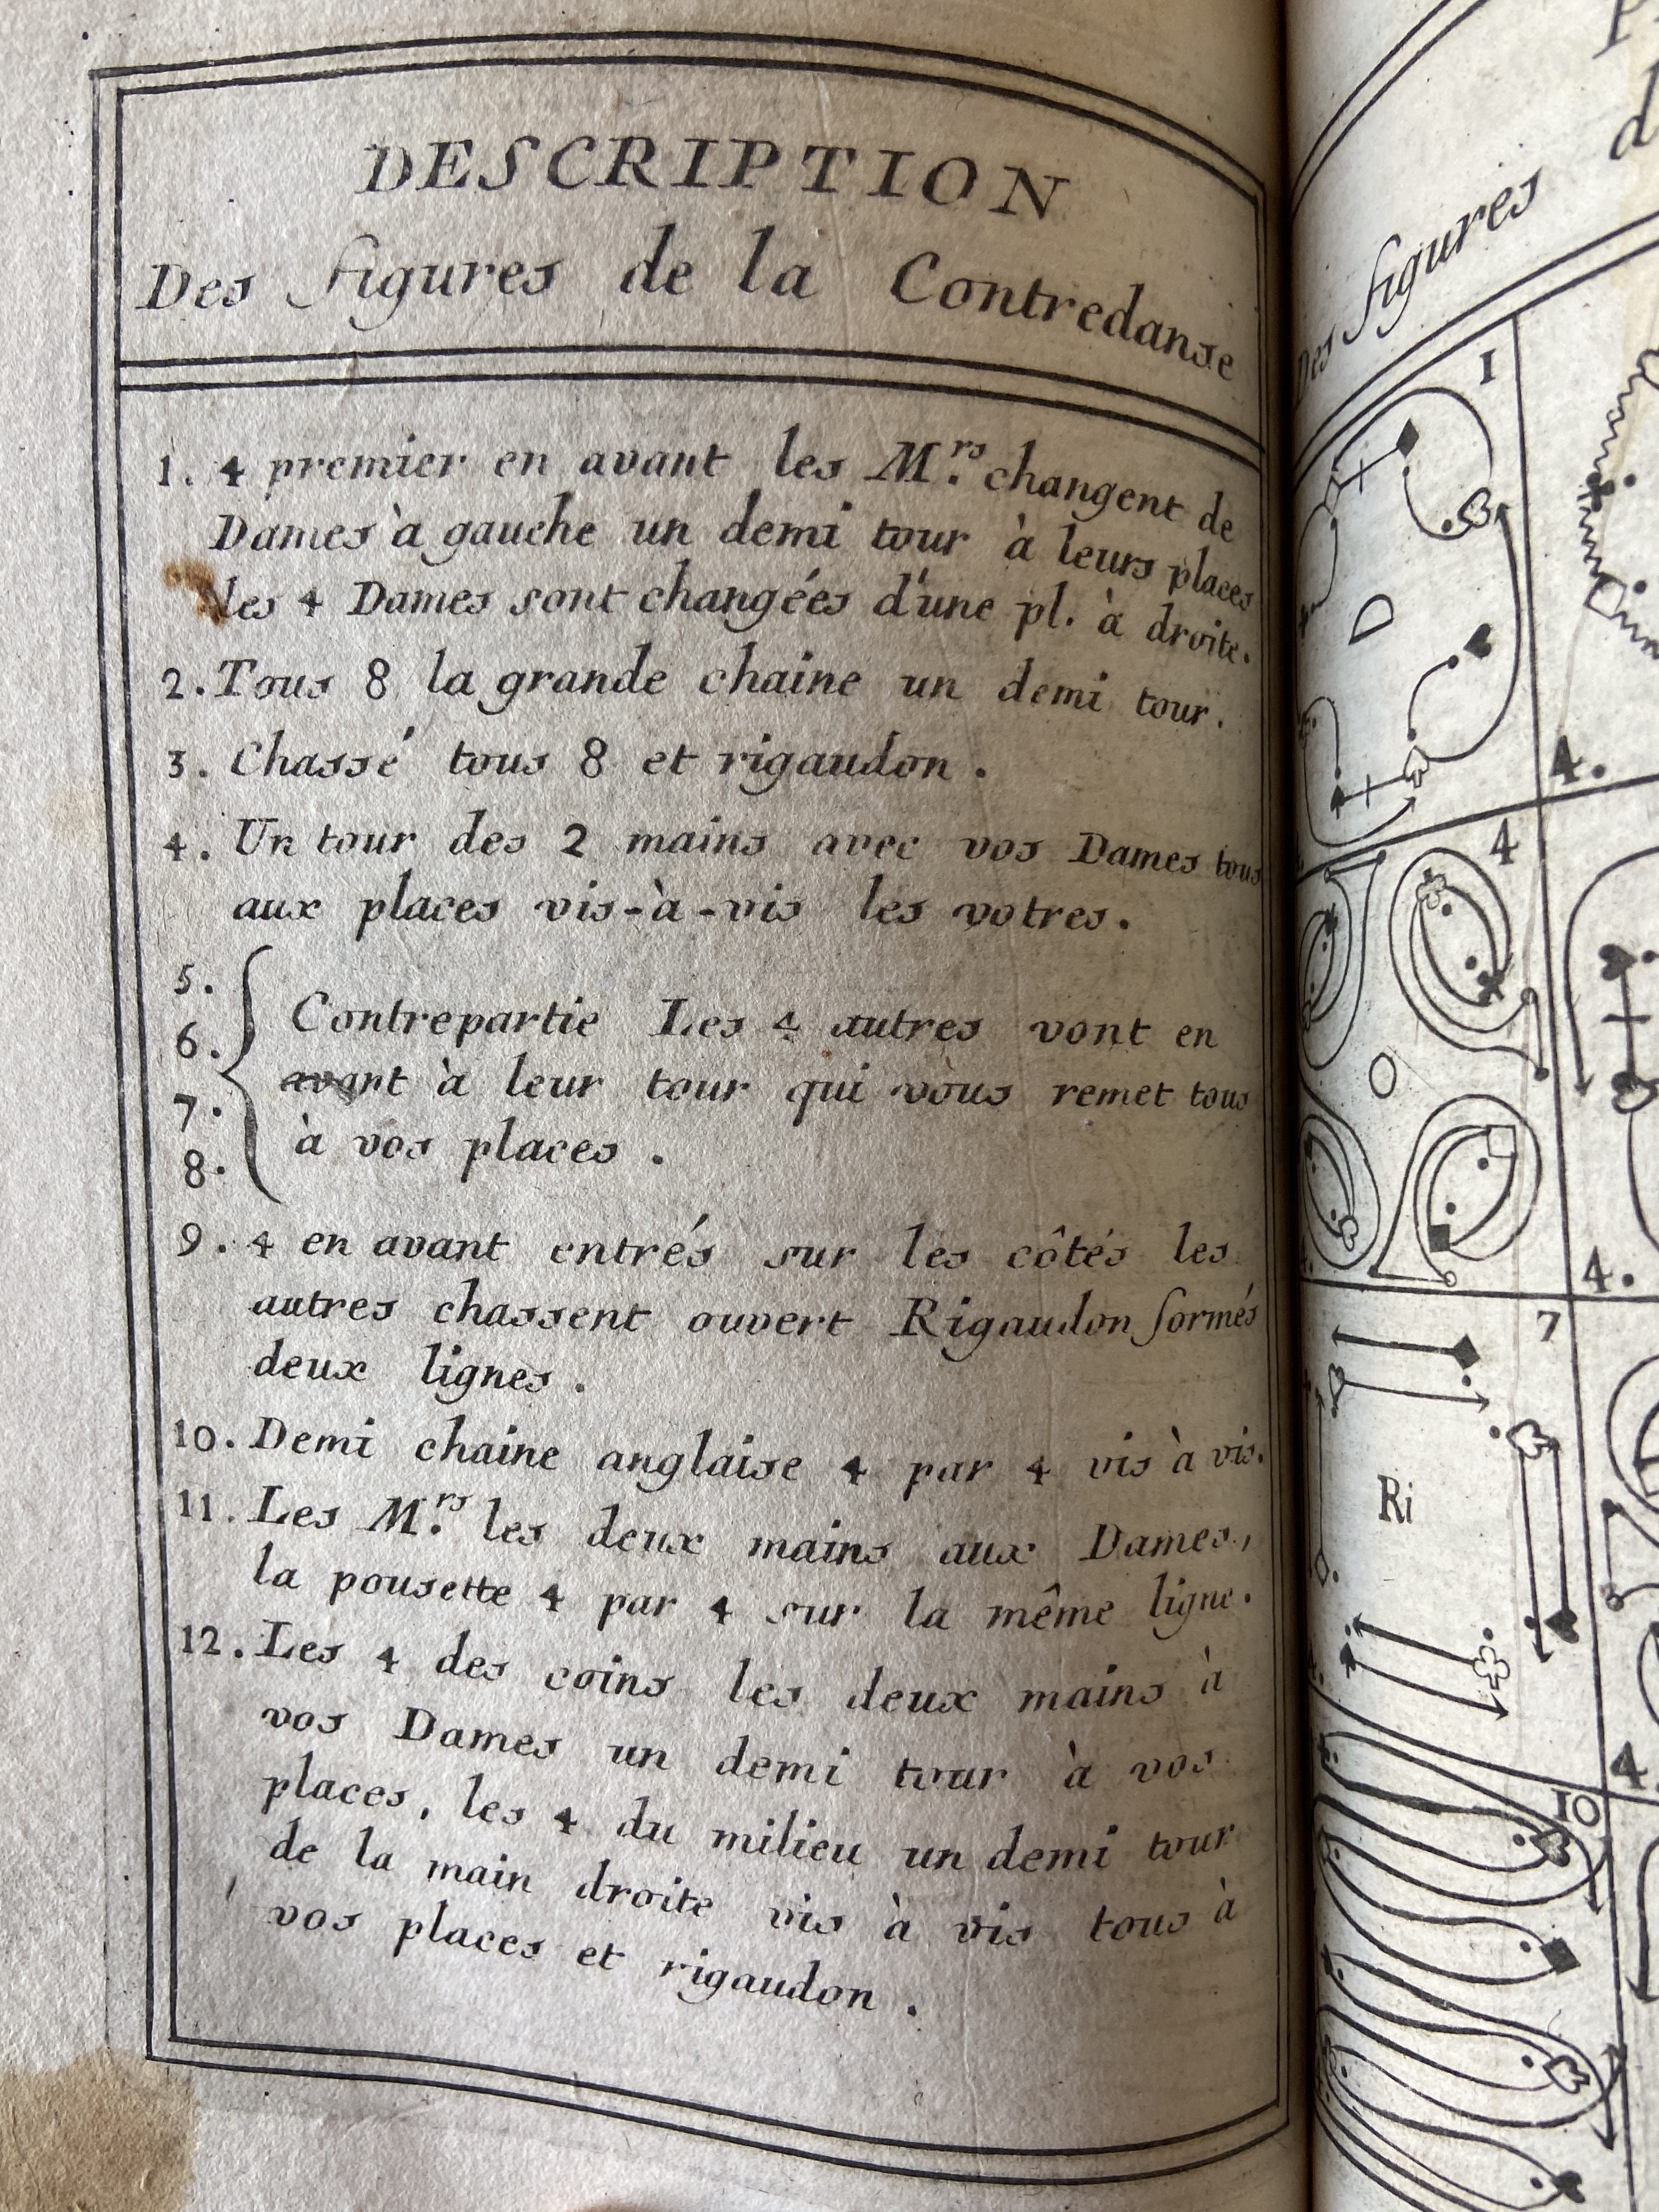 DESCRIPTION
Des figures de la Contredanse
1. 4 premier en avant les M.rs changent de
Dames à gauche un demi tour à leurs places
les 4 Dames sont changées d'une pl. à droite.
2. Tous 8 la grande chaine un demi tour.
3. Chassé tous 8 et rigaudon.
4. Un tour des 2 mains avec vos Dames tous
aux places vis-à-vis les votres.
5.
6.
7.
8.
Contrepartie Les 4 autres vont en
avant à leur tour qui vous remet tous
à vos places.
9. 4 en avant entrés sur les côtés les
autres chassent ouvert Rigaudon formés
deux lignes.
10. Demi chaine anglaise 4 par 4 vis à vis.
11. Les M.rs les deux mains aux Dames,
la pousette 4 par 4 sur la même ligne.
12. Les 4 des coins les deux mains à
vos Dames un demi tour à vos
places, les 4 du milieu un demi tour
de la main droite vis à vis tous à
vos places et rigaudon.
Des figures
1
D
4.
4
4.
7
Ri
4.
10